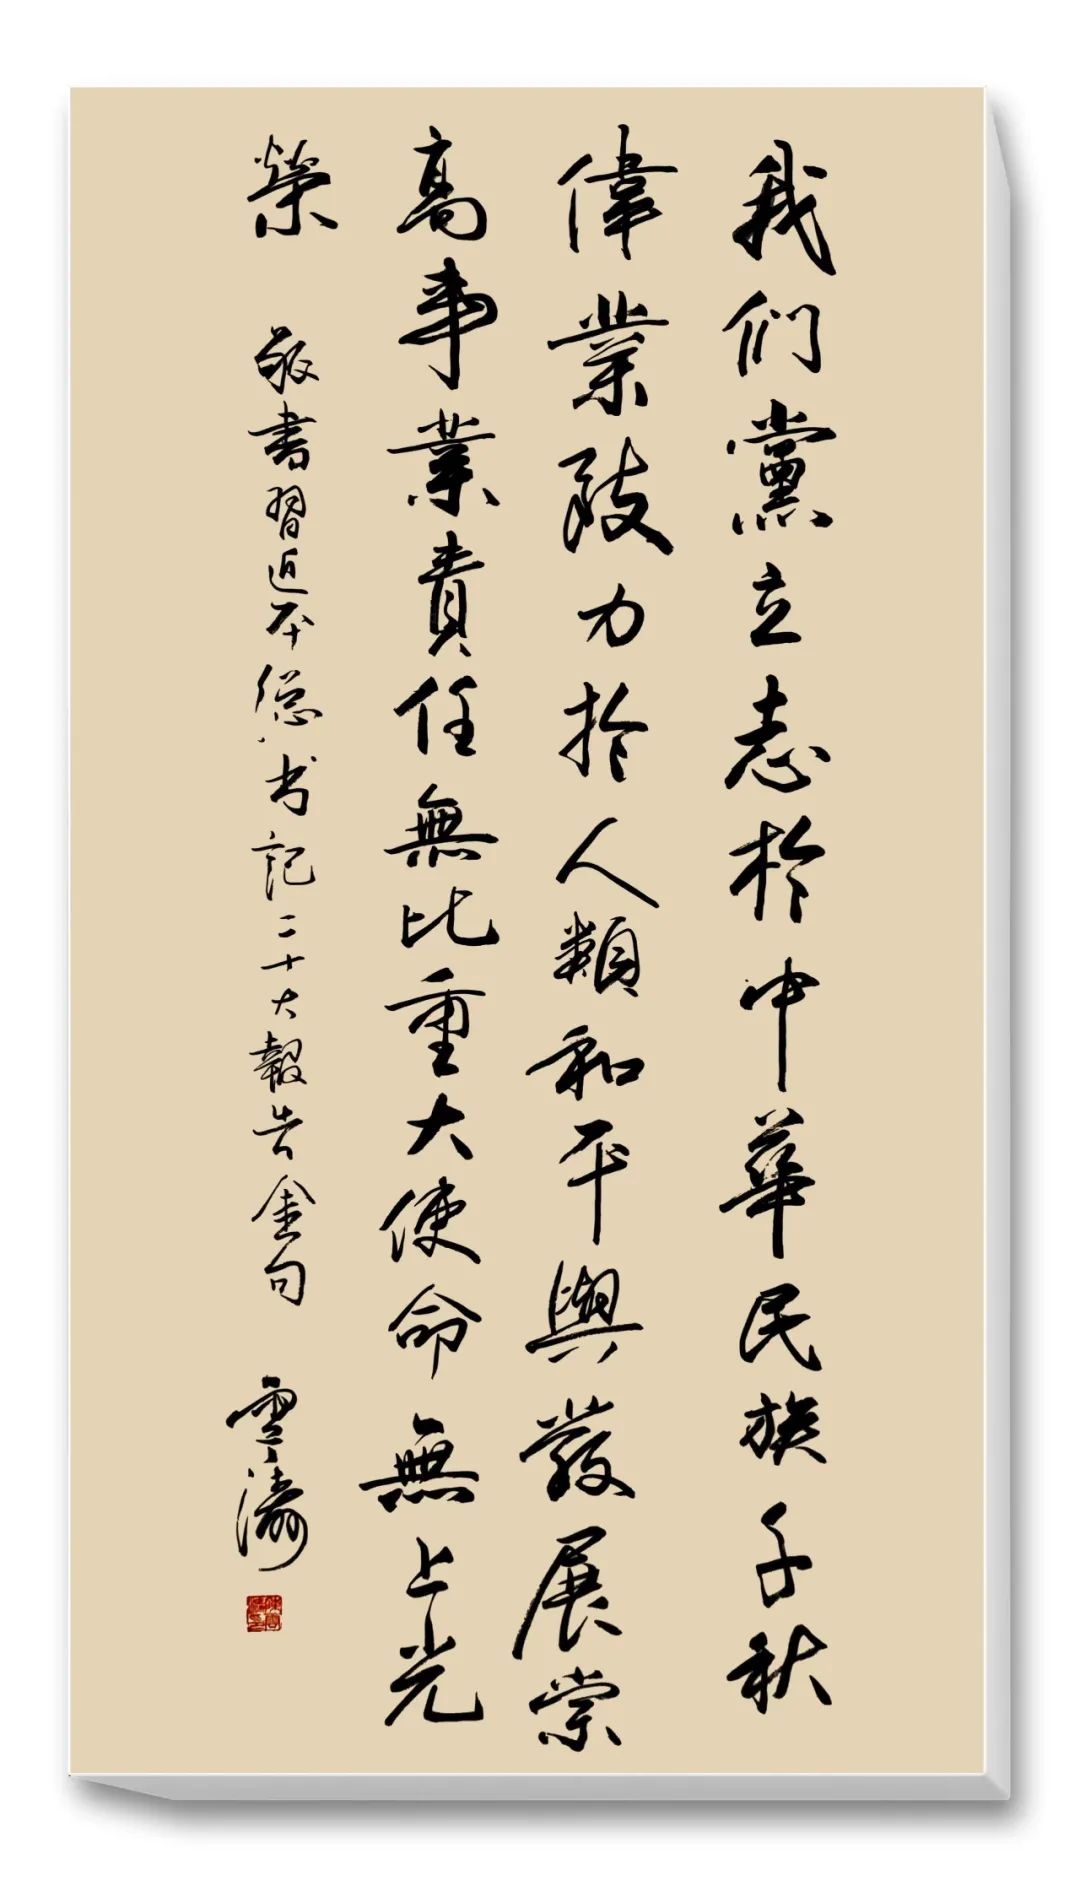 我们黨立志於中華民族千秋
偉業致力於人類和平與發展崇
高事業責任無比重大使命無上光
榮
敬書習近平總书記二十大報告金句
雪濤